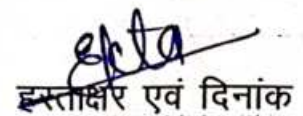 Ekta
हस्ताक्षर एवं दिनांक